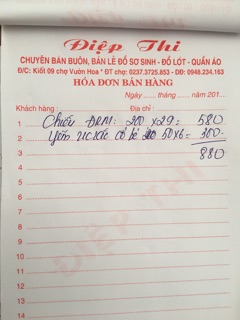 Điệp Thi
CHUYÊN BÁN BUÔN, BÁN LẺ ĐỒ SƠ SINH - ĐỒ LÓT - QUẦN ÁO
Đ/C: Kiốt 09 chợ Vườn Hoa * ĐT chợ: 0237.3725.853 - DĐ: 0948.234.163
HÓA ĐƠN BÁN HÀNG
Ngày ..... tháng ..... năm 201...
Khách hàng : Địa chỉ :
1 Chiếu : 200 x 29 = 580
2 cổ bé 50x6 = 300
3 880
4
5
6
7
8
9
10
11
12
13
14
ĐIỆP THI